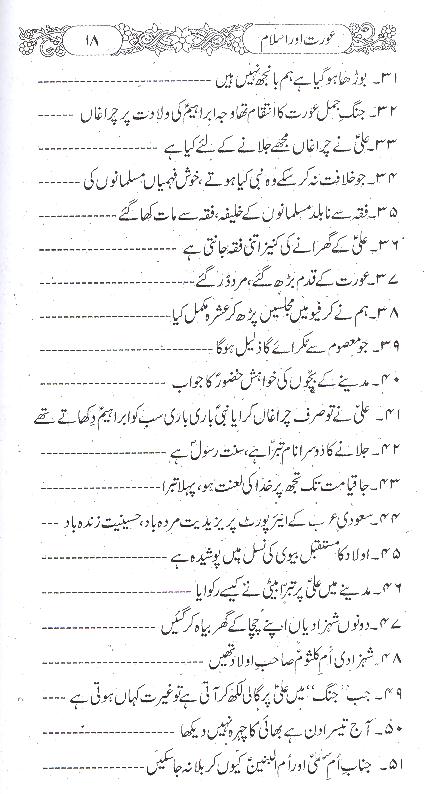 عورت اور اسلام ۱۸
۳۱۔ بوڑھا ہو گیا ہے ہم بانجھ نہیں ہیں
۳۲۔ جنگِ جمل عورت کا انتقام تھا وجہ ابراہیمؑ کی ولادت پر چراغاں
۳۳۔ علیؑ نے چراغاں مجھے جلانے کے لئے کیا ہے
۳۴۔ جو خلافت نہ کر سکے وہ نبی کیا ہوتے، خوش فہمیاں مسلمانوں کی
۳۵۔ فقہ سے نابلد مسلمانوں کے خلیفہ، فقہ سے مات کھا گئے
۳۶۔ علیؑ کے گھرانے کی کنیز اتنی فقہ جانتی ہے
۳۷۔ عورت کے قدم بڑھ گئے، مرد ڈر گئے
۳۸۔ ہم نے کرفیو میں مجلسیں پڑھ کر عشرہ مکمل کیا
۳۹۔ جو معصوم سے ٹکرائے گا ذلیل ہوگا
۴۰۔ مدینے کے بچّوں کی خواہش حضورؐ کا جواب
۴۱۔ علیؑ نے تو صرف چراغاں کرایا نبیؐ باری باری سب کو ابراہیمؑ دکھاتے تھے
۴۲۔ جلانے کا دوسرا نام تبرّا ہے، سنت رسولؐ ہے
۴۳۔ جا قیامت تک تجھ پر خدا کی لعنت ہو، پہلا تبرا
۴۴۔ سعودی عرب کے ائیرپورٹ پر یزیدیت مردہ باد، حسینیت زندہ باد
۴۵۔ اولاد کا مستقبل بیوی کی نسل میں پوشیدہ ہے
۴۶۔ مدینے میں علیؑ پر تبرّا بیٹیؑ نے کیسے رکوایا
۴۷۔ دونوں شہزادیاں اپنے چچا کے گھر بیاہ کر گئیں
۴۸۔ شہزادی اُم کلثومؑ صاحبِ اولاد تھیں
۴۹۔ جب ”جنگ“ میں علیؑ پر گالی لکھ کر آتی ہے تو غیرت کہاں ہوتی ہے
۵۰۔ آج تیسرا دن ہے بھائی کا چہرہ نہیں دیکھا
۵۱۔ جناب اُم سلمیٰؑ اور اُم البنینؑ کیوں کربلا نہ جاسکیں